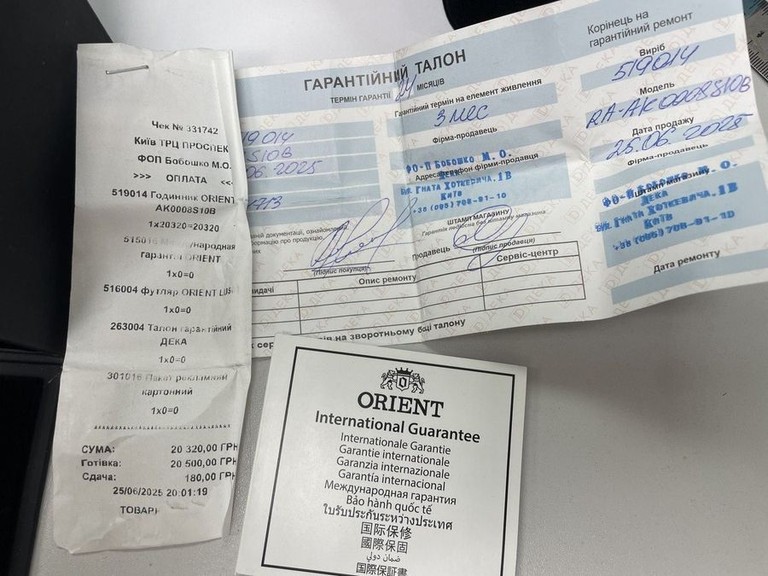 Чек № 331742
Київ ТРЦ ПРОСПЕК
ФОП Бобошко М.О.
>>> ОПЛАТА <<
519014 Годинник ORIENT
AK0008S10B
1x20320=20320
гарантія ORIENT
1x0=0
516004 футляр ORIENT
1x0=0
263004 Талон гарантійний
ДЕКА
1x0=0
301016 Пакет рекламний
картонний
1x0=0
СУМА: 20 320,00 ГРН
Готівка: 20 500,00 ГРН
Сдача: 180,00 ГРН
25/06/2025 20:01:19
ТОВАРН
ГАРАНТІЙНИЙ ТАЛОН
ТЕРМІН ГАРАНТІЇ 24 МІСЯЦІВ
Гарантійний термін на елемент живлення
3 мес
Фірма-продавець
ФО-П Бобошко М. О.
Адреса, телефон фірми-продавця
вул. Гната Хоткевича, 1В
Київ
+38 (095) 708-91-10
ШТАМП МАГАЗИНУ
Гарантія недійсна без штампа магазина
(підпис покупця)
Продавець
(підпис продавця)
Опис ремонту
Сервіс-центр
на зворотньому боці талону
Корінець на
гарантійний ремонт
Виріб
519014
Модель
RA-AK0008S10B
Дата продажу
25.06.2025
Фірма-продавець
ДЕКА
вул. Гната Хоткевича, 1В
Київ
+38 (095) 708-91-10
Дата ремонту
ORIENT
International Guarantee
Internationale Garantie
Garantie internationale
Garanzia internazionale
Garantía internacional
Международная гарантия
Bảo hành quốc tế
ใบรับประกันระหว่างประเทศ
国际保修
國際保固
ضمان دولي
国際保証書